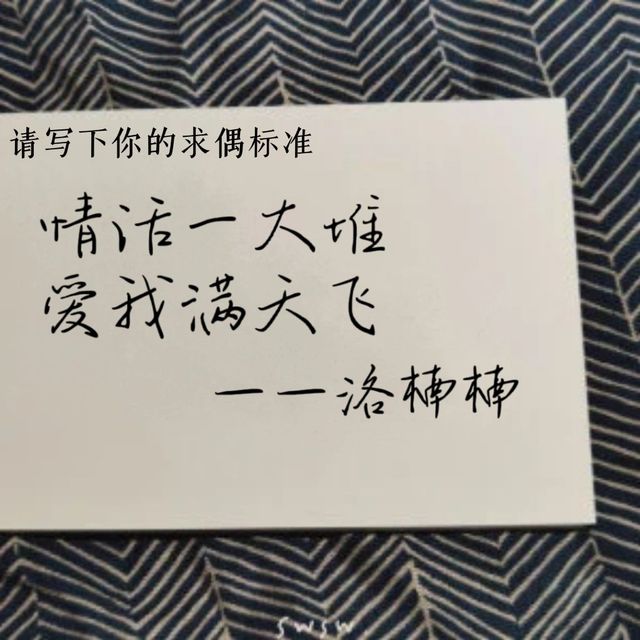 请写下你的求偶标准
情话一大堆
爱我满天飞
——洛楠楠
swsw.